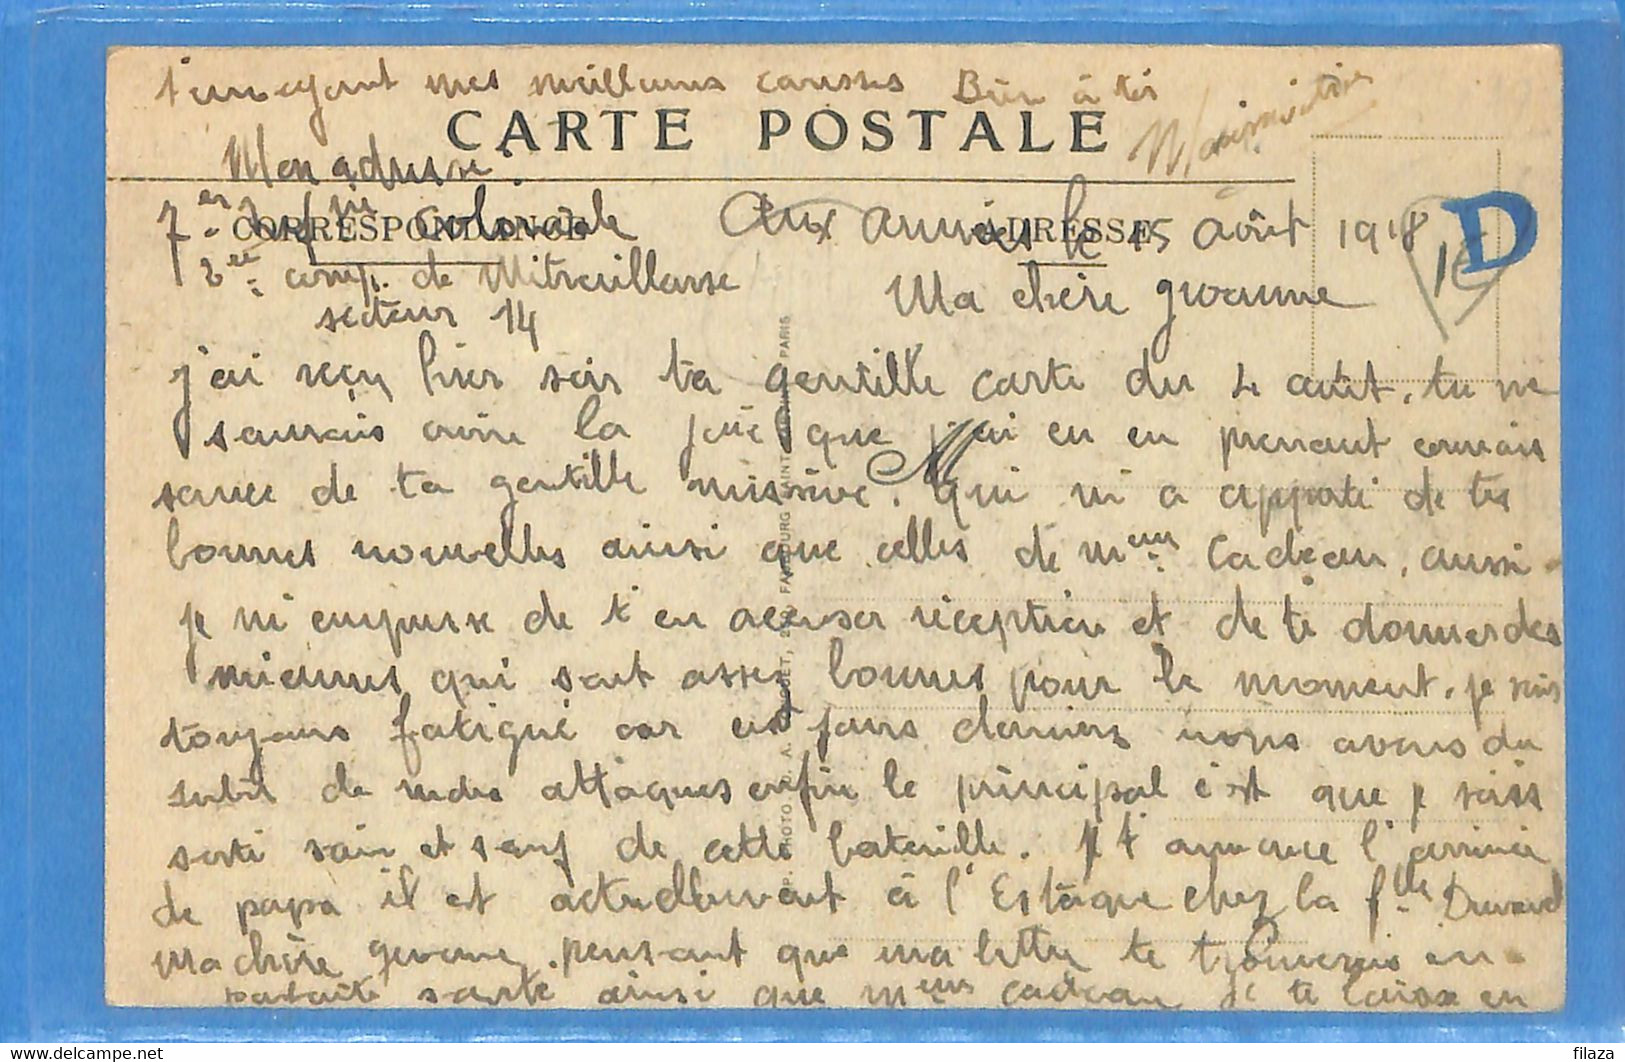 t'envoyant mes meilleures caresses Bien à toi
CARTE POSTALE
Mon adresse :
CORRESPONDANCE
ADRESSE
7e Inf rie coloniale
Aux armées le 15 août 1918
D
2ee comp. de Mitrailleuse
secteur 14
Ma chère
j'ai reçu hier soir ta gentille carte du 4 août, tu ne
saurais croire la joie que j'ai eu en prenant connais
sance de ta gentille missive. qui m'a apporté de tes
bonnes nouvelles ainsi que celles de Mme Cadeau, aussi
je m'empresse de t'en accuser réception et de te donner des
miennes qui sont assez bonnes pour le moment. je suis
toujours fatigué car ces jours derniers nous avons du
subir de rudes attaques enfin le principal c'est que je sois
sorti sain et sauf de cette bataille. je t'annonce l'arrivée
de papa il est actuellement à l'Estaque chez la flle
Ma chère pensant que ma lettre te trouverais en
parfaite santé ainsi que Mme Cadeau je te laisse en
PHOTO A. FAUBOURG SAINT PARIS
filaza